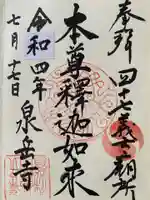 奉拝 四十七義士廟所
本尊釋迦如来
泉岳寺
令和四年
七月十七日